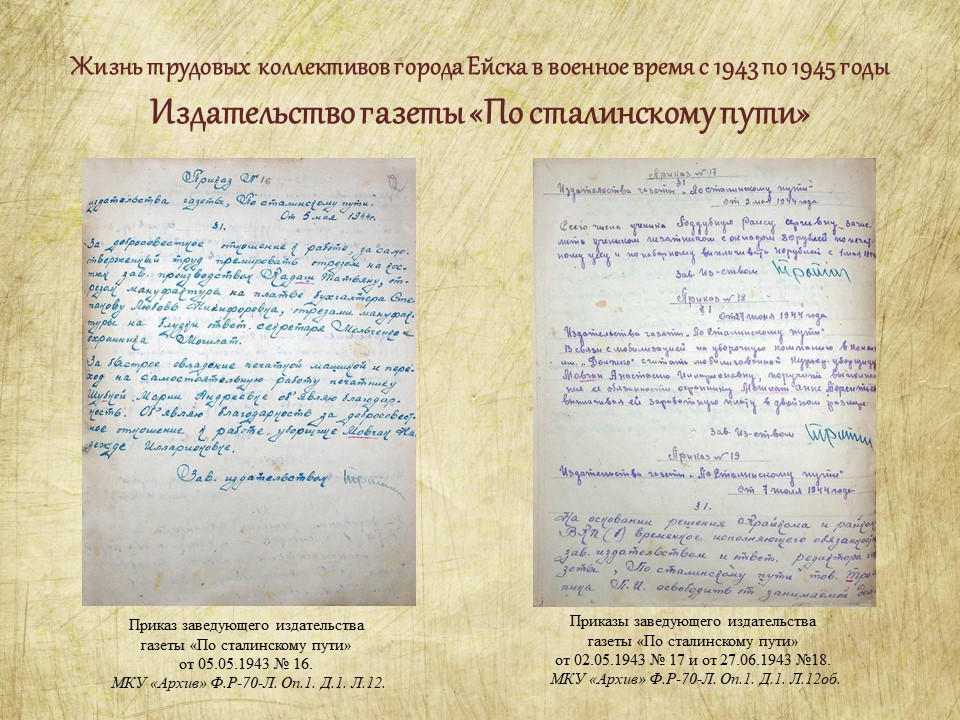 Жизнь трудовых коллективов города Ейска в военное время с 1943 по 1945 годы
Издательство газеты «По сталинскому пути»
Приказ № 16
12
издательства газеты „По сталинскому пути".
От 5 мая 1944г.
§1.
За добросовестное отношение к работе, за само-
отверженный труд премировать отрезом на кос-
тюм зав. производством Радаш Татьяну, от-
резом мануфактуры на платье бухгалтера Сте-
панову Любовь Никифоровну, отрезами мануфак-
туры на блузки ответ. секретаря Мельченко и
охранника Могилат.
За быстрое овладение печатной машиной и пере-
ход на самостоятельную работу печатнику
Шубной Марии Андреевне об'являю благодар-
ность. Об'являю благодарность за добросовест-
ное отношение к работе уборщице Мовчан На-
дежде Илларионовне.
Зав. издательством
Приказ № 17
§1
Издательства газеты „По сталинскому пути"
от 2 мая 1944 года
Сего числа ученика Поддубную Раису Сергеевну зачис-
лить учеником с окладом 80 рублей по печат-
ному цеху и по наборному выплачивать рублей с 1 мая 1944
Зав. Из-ством
Приказ № 18
§1 от 27 июня 1944 года
Издательства газеты „По Сталинскому пути"
В связи с мобилизацией на уборочную компанию в
им. считать мобилизованной курьер-уборщицу
Мовчан Анастасию Илларионовну, поручить выполне-
ние ее обязанности охраннику Могилат Анне
выплачивая ей заработную плату в двойном размере.
Зав. Из-ством
Приказ № 19
Издательства газеты „По Сталинскому пути"
от 7 июля 1944 года
§1.
На основании решения Крайкома и райком
ВКП(б) временно исполняющего обязанност
зав. издательством и ответ. редактора га
зеты „По сталинскому пути" тов. Тро
пина П.И. освободить от занимаемой
Приказ заведующего издательства
газеты «По сталинскому пути»
от 05.05.1943 № 16.
МКУ «Архив» Ф.Р-70-Л. Оп.1. Д.1. Л.12.
Приказы заведующего издательства
газеты «По сталинскому пути»
от 02.05.1943 № 17 и от 27.06.1943 №18.
МКУ «Архив» Ф.Р-70-Л. Оп.1. Д.1. Л.12об.